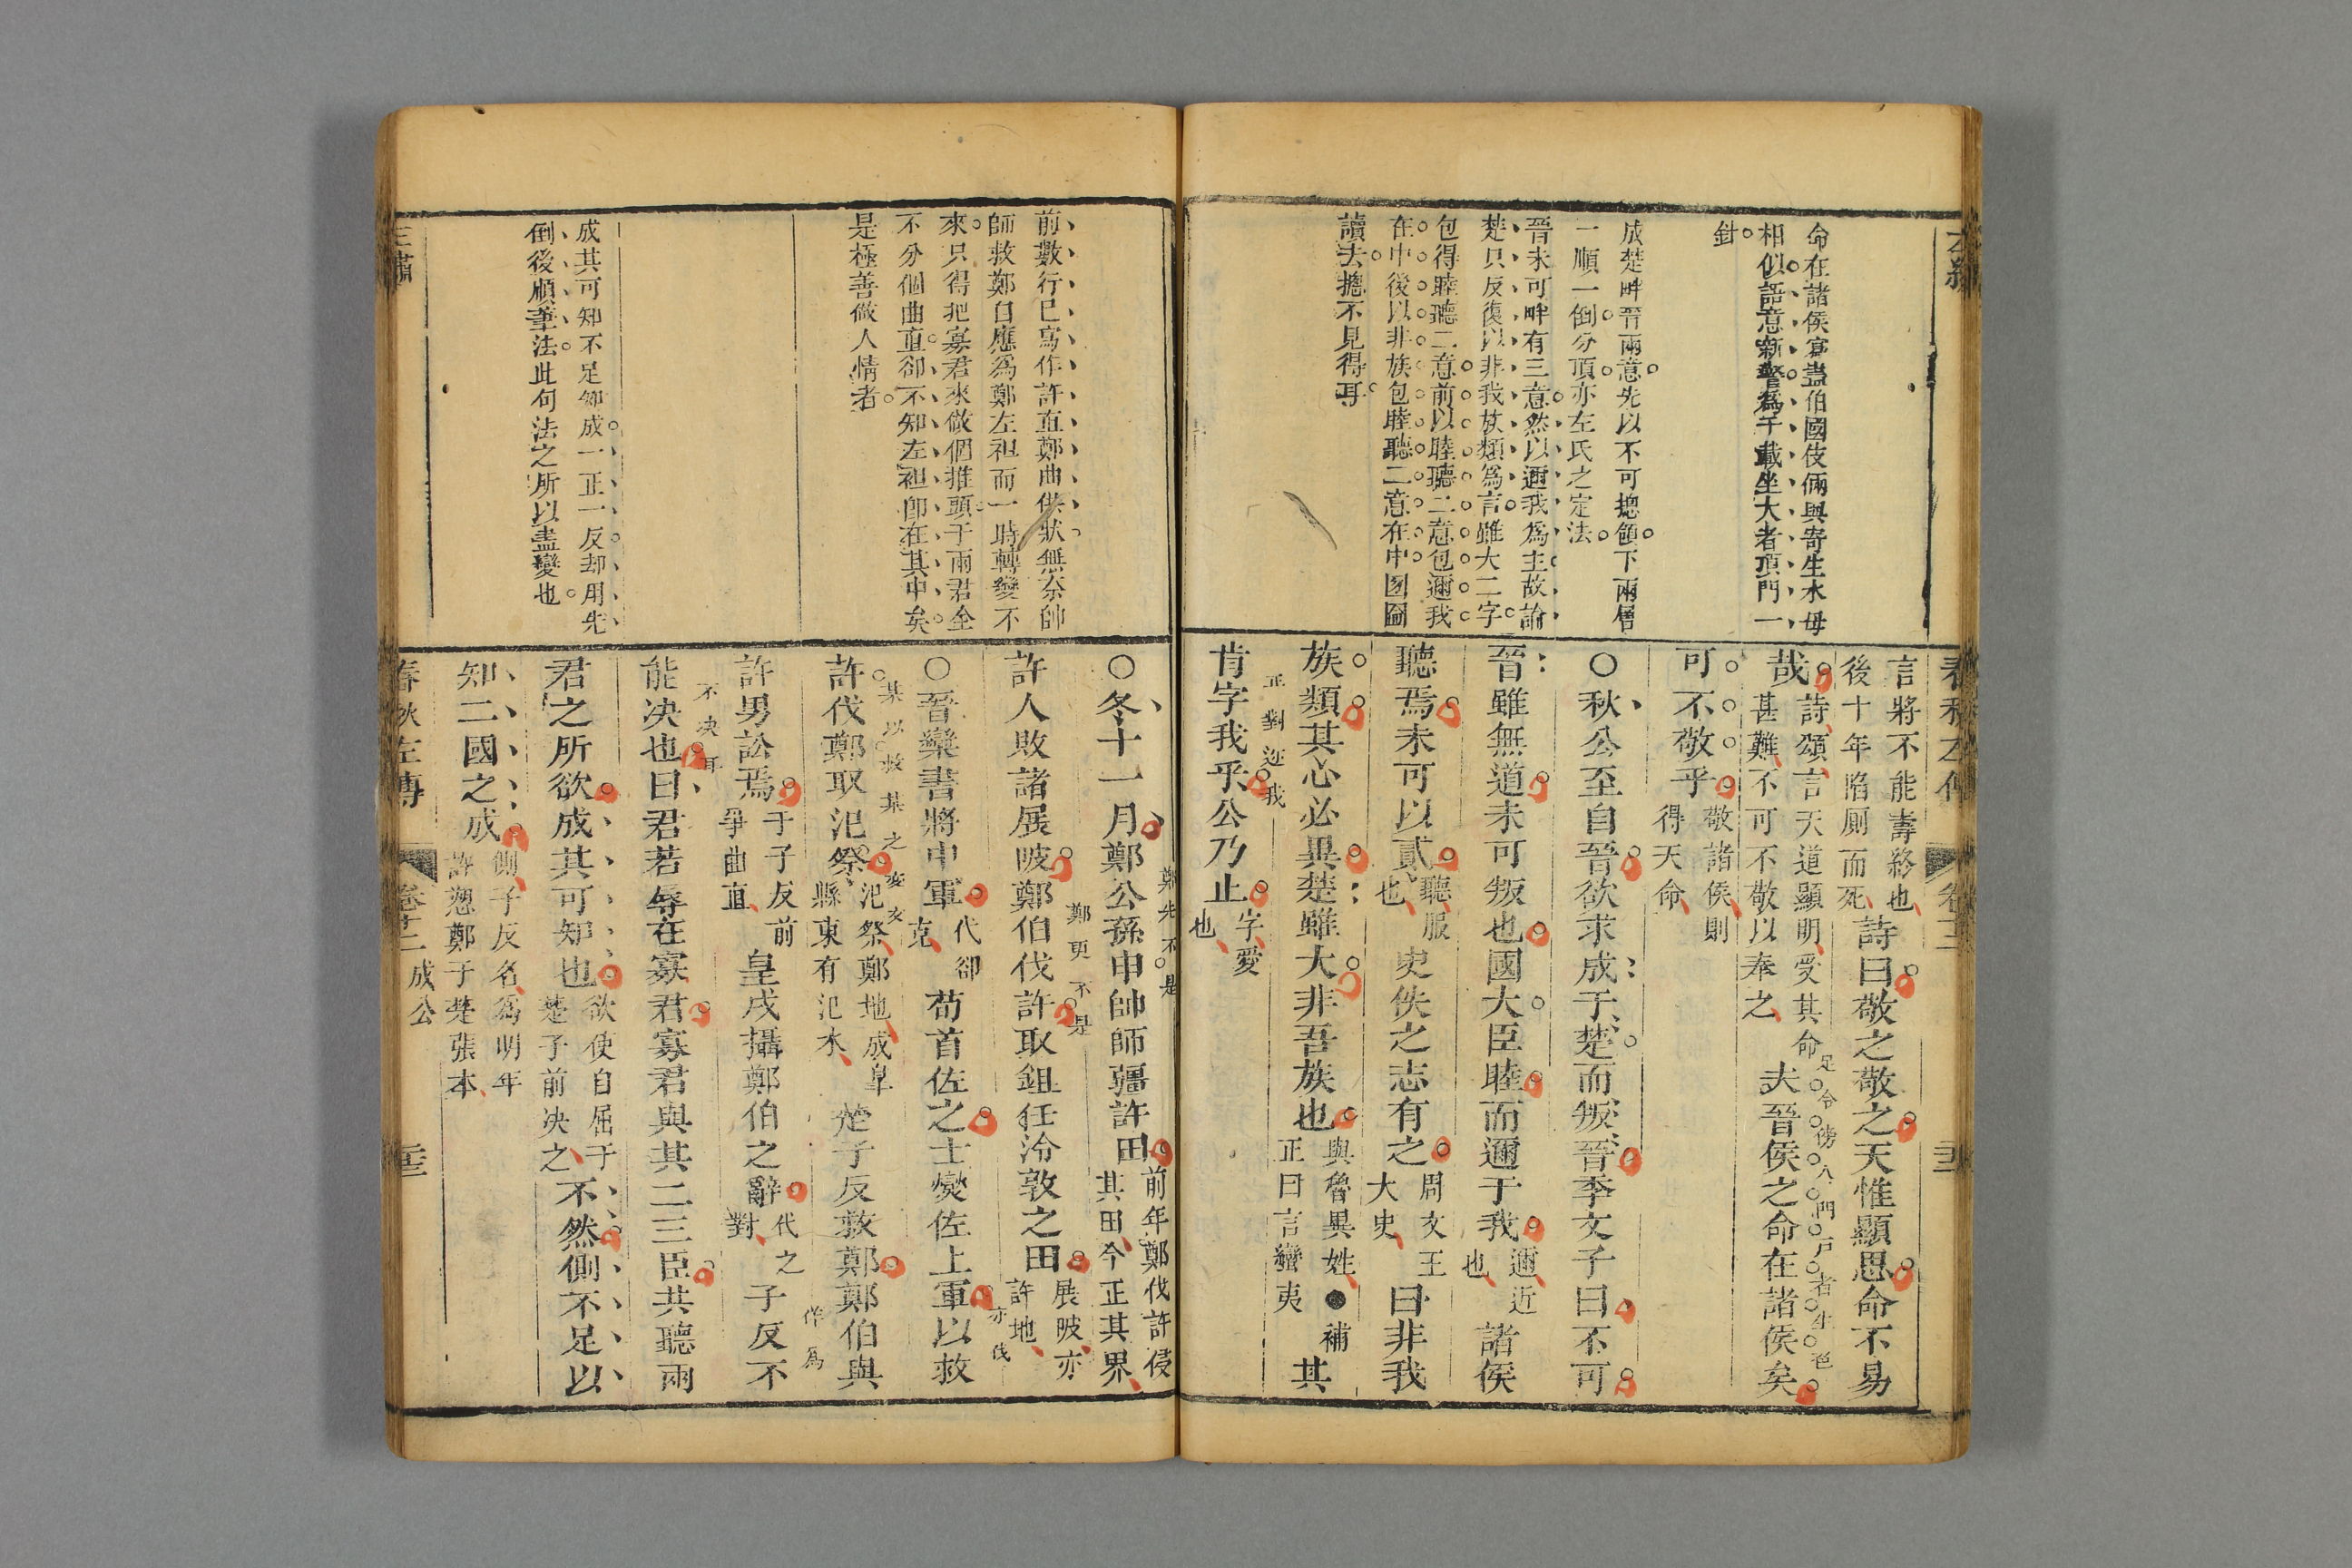 命在諸侯寫盡伯國伎倆與寄生水母
相似語意新警為千載坐大者頂門一
針
成楚畔晉兩意先以不可總領下兩層
一順一倒分頂亦左氏之定法
晉未可畔有三意然以邇我為主故論
楚只反復以非我族類為言雖大二字
包得睦聽二意前以睦聽二意包邇我
在中後以非族包睦聽二意在中囫圇
讀去總不見得耳
言將不能壽終也
後十年陷厠而死
詩曰敬之敬之天惟顯思命不易
哉
詩頌言天道顯明受其命
甚難不可不敬以奉之
夫晉侯之命在諸侯矣
足令傍人門戶者生色
可不敬乎
敬諸侯則
得天命
○秋公至自晉欲求成于楚而叛晉季文子曰不可
晉雖無道未可叛也國大臣睦而邇于我
邇近
也
諸侯
聽焉未可以貳
聽服
也
史佚之志有之
周文王
大史
曰非我
族類其心必異楚雖大非吾族也
與魯異姓●補
正曰言蠻夷
其
正對邇我
肯字我乎公乃止
字愛
也
前數行已寫作許直鄭曲供狀無奈帥
師救鄭自應為鄭左袒而一時轉變不
來只得把寡君來做個推頭于兩君全
不分個曲直卻不知左袒即在其中矣
是極善做人情者
成其可知不足知成一正一反却用先
倒後順筆法此句法之所以盡變也
○冬十一月鄭公孫申帥師疆許田
前年鄭伐許侵
其田今正其界
鄭先不是
許人敗諸展陂鄭伯伐許取鉏任泠敦之田
展陂亦
許地
鄭更不是
○晉欒書將中軍
代郤
克
荀首佐之士燮佐上軍以救
亦伐
許伐鄭取汜祭
汜祭鄭地成皐
縣東有汜水
楚子反救鄭鄭伯與
許男訟焉
于子反前
爭曲直
皇戌攝鄭伯之辭
代之
對
子反不
作為
能決也曰君若辱在寡君寡君與其二三臣共聽兩
不決耳
君之所欲成其可知也
欲使自屈于
楚子前決之
不然側不足以
知二國之成
側子反名為明年
許愬鄭于楚張本
春秋左傳
成公